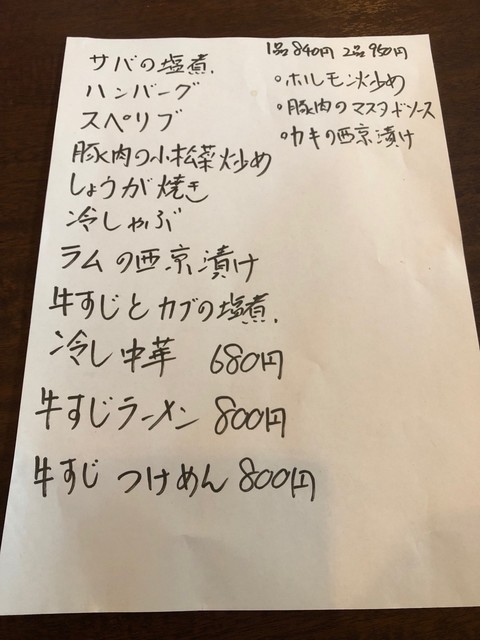 サバの塩煮
ハンバーグ
スペリブ
豚肉の小松菜炒め
しょうが焼き
冷しゃぶ
ラムの西京漬け
牛すじとカブの塩煮
冷し中華 680円
牛すじラーメン 800円
牛すじ つけめん 800円
1品840円 2品950円
○ホルモン炒め
○豚肉のマスタードソース
○カキの西京漬け